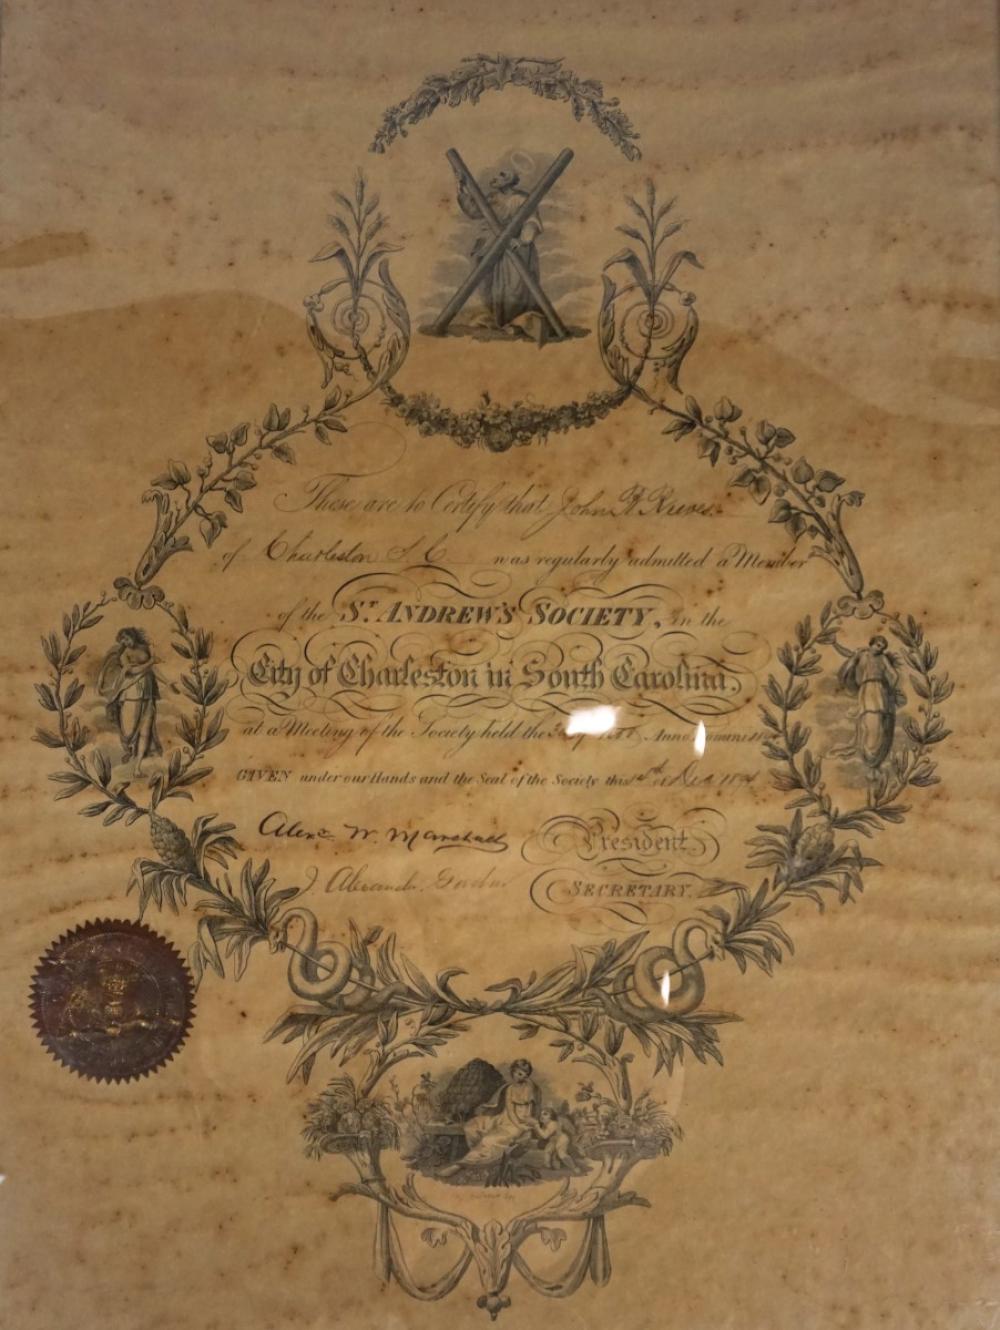 These are to Certify that John R Rieves
of Charleston S. C. was regularly admitted a Member
of the ST. ANDREW'S SOCIETY, in the
City of Charleston in South Carolina,
at a Meeting of the Society held the Anno Domini
GIVEN under our Hands and the Seal of the Society this
Alexr W. Marshall President.
J. Alexander SECRETARY.